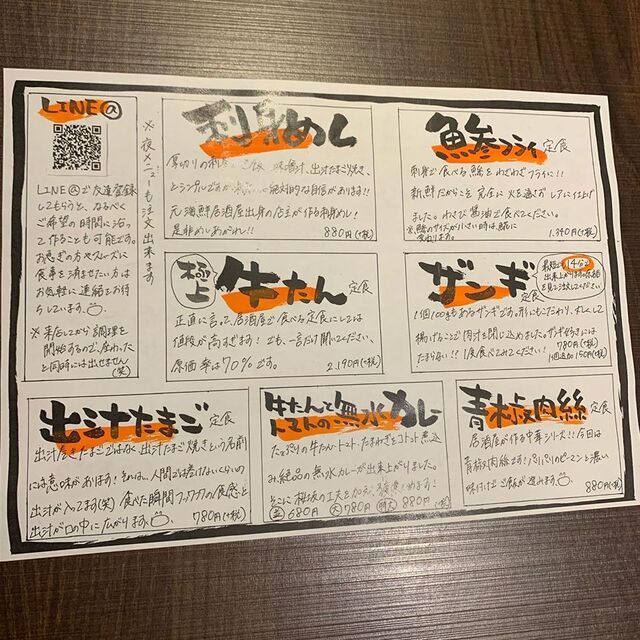 LINE@
LINE@で友達登録
してもらうと、なるべく
ご希望の時間に沿っ
て作ることも可能です。
お急ぎの方やスムーズに
食事を済ませたい方は
お気軽に連絡をお待
ちしています。
※来店してから調理を
開始するので、座わった
と同時には出せません
(笑)
※夜メニューも注文出来ます
刺身めし
厚切りの刺身 ご飯、味噌汁、出汁たまご焼き、
とシンプルですが 絶対的な自信があります!!
元海鮮居酒屋出身の店主が作る刺身めし!
是非めしあがれ!!
880円(+税)
鯵フライ定食
刺身で食べる鯵をわざわざフライに!!
新鮮だからこそ完全に火を通さずレアに仕上げ
ました。わさび醤油で食べてください。
※鯵のサイズが小さい時は鯵に
変わります。
1,340円(+税)
極上
牛たん定食
正直に言って、居酒屋で食べる定食にしては
値段が高すぎます! でも、一言だけ聞いてください、
原価率は70%です。
2,190円(+税)
ザンギ定食
最短でも14分で
出来上がりますので、お時間
を見て注文してください
1個100gもあるザンギです。形にもこだわり、丸くして
揚げることで肉汁を閉じ込めました。ザンギ好きには
たまらない!! 1度食べてみてください!
780円(+税)
1個追加150円(+税)
出汁たまご定食
出汁たまごではなく出汁たまご焼きという名前
には意味があります! それは…人間では巻けないくらいの
出汁が入ってます(笑) 食べた瞬間フワフワの食感と
出汁が口の中に広がります。
780円(+税)
牛たんと
トマトの無水カレー
たっぷりの牛たん・トマト・たまねぎをコトコト煮込
み、絶品の無水カレーが出来上がりました。
そこに桜坂の工夫を加え
並 680円 大 780円 特大 880円(+税)
青椒肉絲定食
居酒屋が作る中華シリーズ!! 今回は
青椒肉絲です! パリパリのピーマンと濃い
味付けでご飯が進みます。
880円(+税)